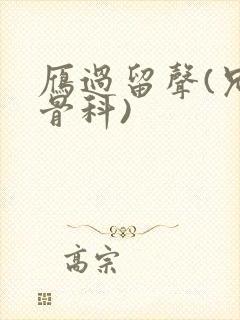 雁過留聲(兄
骨科)
高宗